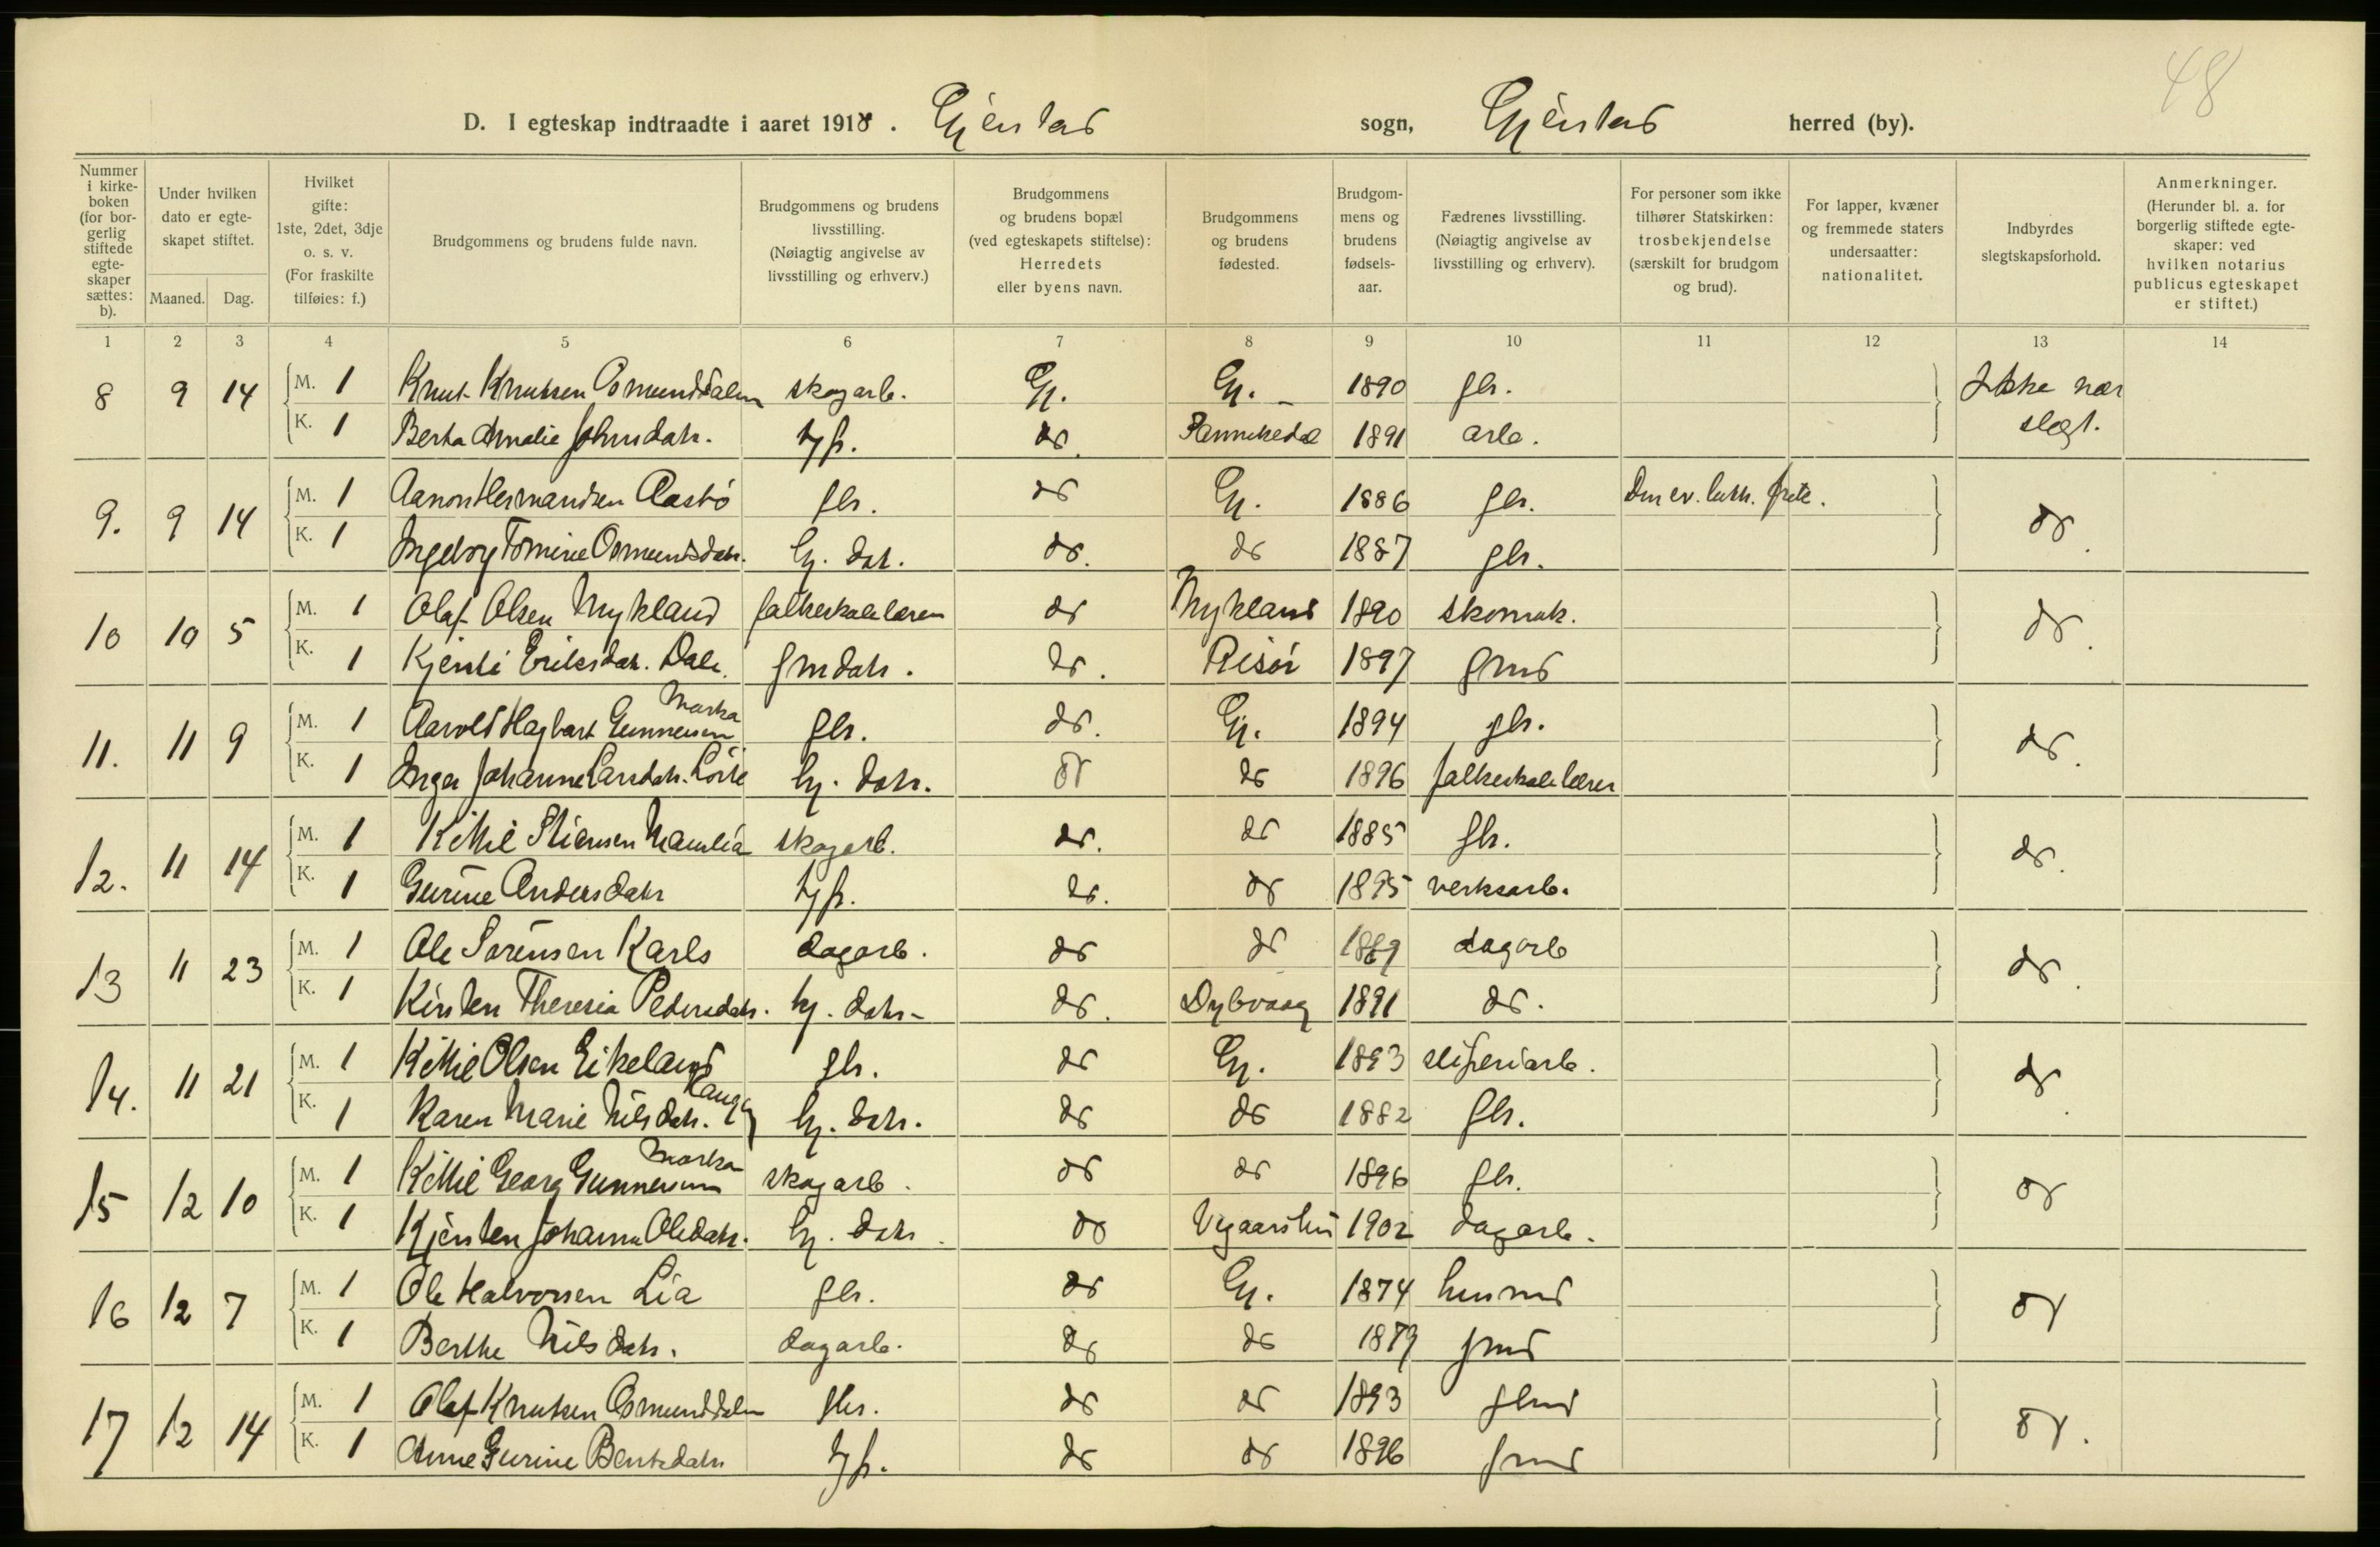 48
D. I egteskap indtraadte i aaret 1918. Gjerstad sogn, Gjerstad herred (by).
Nummer i kirkeboken (for borgerlig stiftede egteskaper sættes: b).
Under hvilken dato er egteskapet stiftet.
Maaned. Dag.
Hvilket gifte: 1ste, 2det, 3dje o. s. v. (For fraskilte tilføies: f.)
Brudgommens og brudens fulde navn.
Brudgommens og brudens livsstilling. (Nøiagtig angivelse av livsstilling og erhverv.)
Brudgommens og brudens bopæl (ved egteskapets stiftelse): Herredets eller byens navn.
Brudgommens og brudens fødested.
Brudgommens og brudens fødselsaar.
Fædrenes livsstilling. (Nøiagtig angivelse av livsstilling og erhverv).
For personer som ikke tilhører Statskirken: trosbekjendelse (særskilt for brudgom og brud).
For lapper, kvæner og fremmede staters undersaatter: nationalitet.
Indbyrdes slegtskapsforhold.
Anmerkninger. (Herunder bl. a. for borgerlig stiftede egteskaper: ved hvilken notarius publicus egteskapet er stiftet.)
1 2 3 4 5 6 7 8 9 10 11 12 13 14
8 9 14 M. 1 Knut Knutsen Osmunddalen skogarb. Gj. Gj. 1890 gbr. Ikke nær slegt.
K. 1 Berta Amalie Johnsdatr. tjp. do. Sannikedal 1891 arb.
9. 9 14 M. 1 Aanon Hermandsen Aasbø gbr. do Gj. 1886 gbr. Den ev. luth. frik. do.
K. 1 Ingeborg Tomine Osmundsdatr. hj. dat. do. do 1887 gbr.
10 10 5 M. 1 Olaf Olsen Mykland folkeskolelærer do Mykland 1890 skomak. do.
K. 1 Kjersti Eriksdatr. Dale. gmdatr. do. Risør 1897 gmd
11. 11 9 M. 1 Aarold Hagbart Gunnersen Marka gbr. do. Gj. 1894 gbr. do.
K. 1 Inger Johanne Larsdatr. Löite hj. datr. do do 1896 folkeskolelærer
12. 11 14 M. 1 Kittil Stiansen Haualia skogarb. do. do 1885 gbr. do.
K. 1 Gurine Andersdatr tjp. do. do 1895 verksarb.
13 11 23 M. 1 Ole Sørensen Karls dagarb. do do 1889 dagarb do.
K. 1 Kirsten Theresia Pedersdatr. hj. datr. do. Dybvaag 1891 do.
14. 11 21 M. 1 Kittil Olsen Eikeland gbr. do Gj. 1893 sliperiarb. do.
K. 1 Karen Marie Nilsdatr. hj. datr. do do 1882 gbr.
15 12 10 M. 1 Kittil Georg Gunnersen Marka skogarb. do do 1896 gbr. do
K. 1 Kjersten Johanne Olsdatr. hj. datr. do Vegaarshei 1902 dagarb.
16 12 7 M. 1 Ole Halvorsen Lia gbr. do Gj. 1874 husmd do
K. 1 Berthe Nilsdatr. dagarb. do do 1879 gmd
17 12 14 M. 1 Olaf Knutsen Osmunddalen gbr. do do 1893 gbmd do.
K. 1 Anne Gurine Bentsdatr tjp. do do 1896 gmd